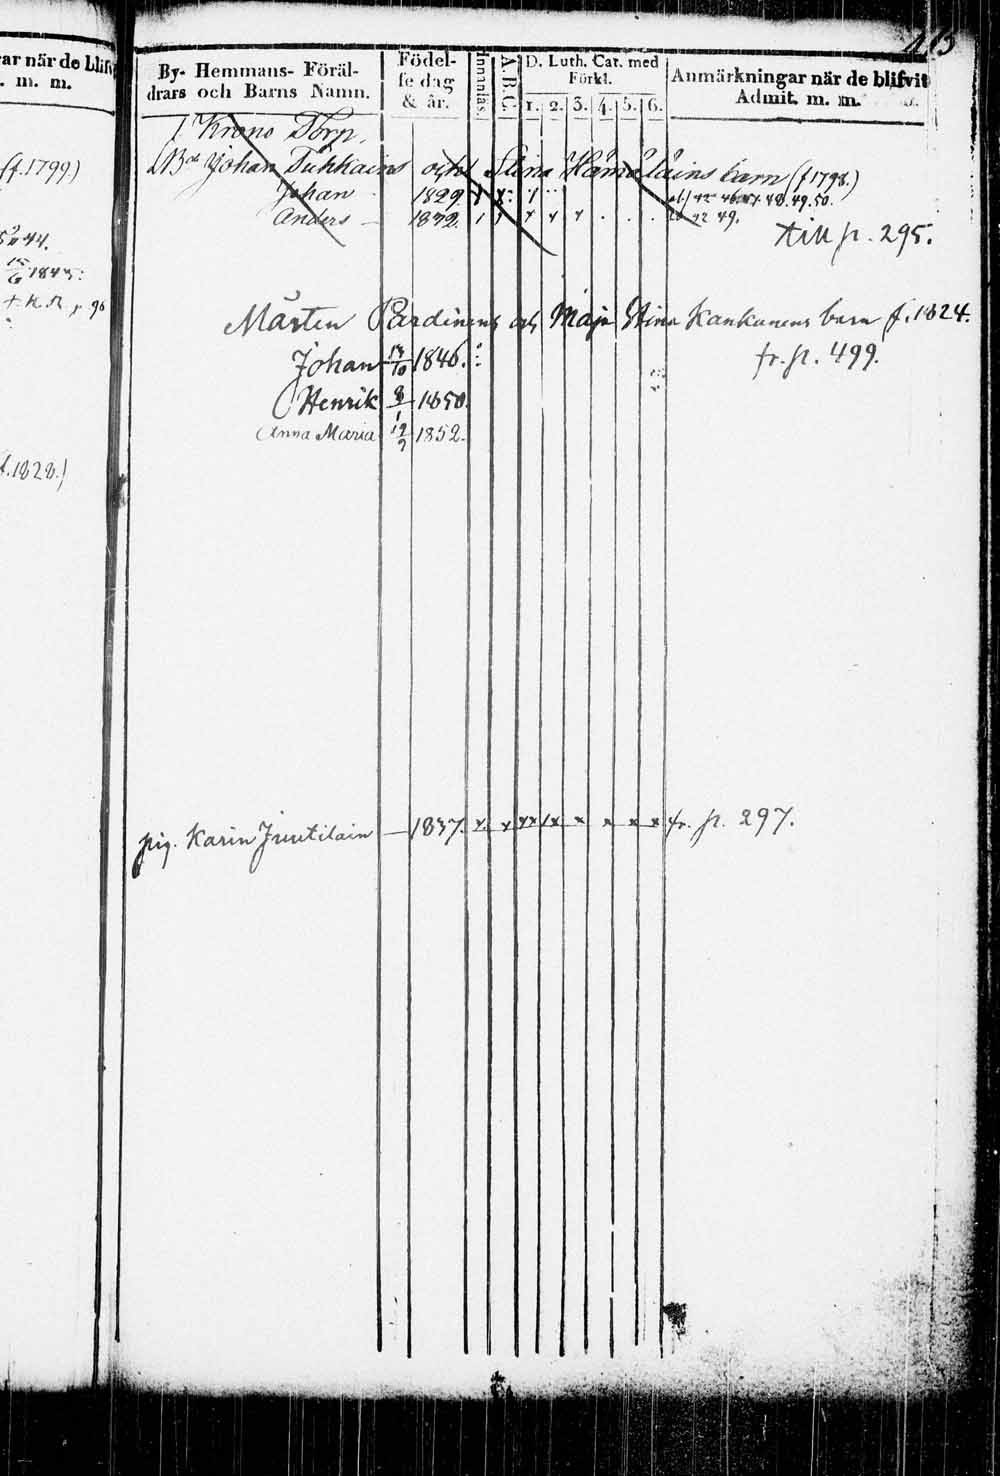 ar när de blifv
. m. m.
(f. 1799)
1844.
1845:
f. 1828.)
By- Hemmans- Föräl-
drars och Barns Namn.
Födel-
se dag
& år.
Innanläs.
A.B.C.
D. Luth. Cat. med
Förkl.
1. 2. 3. 4. 5. 6.
Anmärkningar när de blifvit
Admit. m. m.
Krono Torp.
Johan Tuhkains och Stina Hämäläins barn (f 1798.)
Johan 1829. 48. 49. 50.
Anders 1832. 42 49.
till p. 295.
Mårten Pardinens och Maja Stina Kankunens barn f. 1824.
Johan 1846. fr. p. 499.
Henrik 8/1 1850.
Anna Maria 1852.
pig. Karin Juutilain 1837. fr. p. 297.